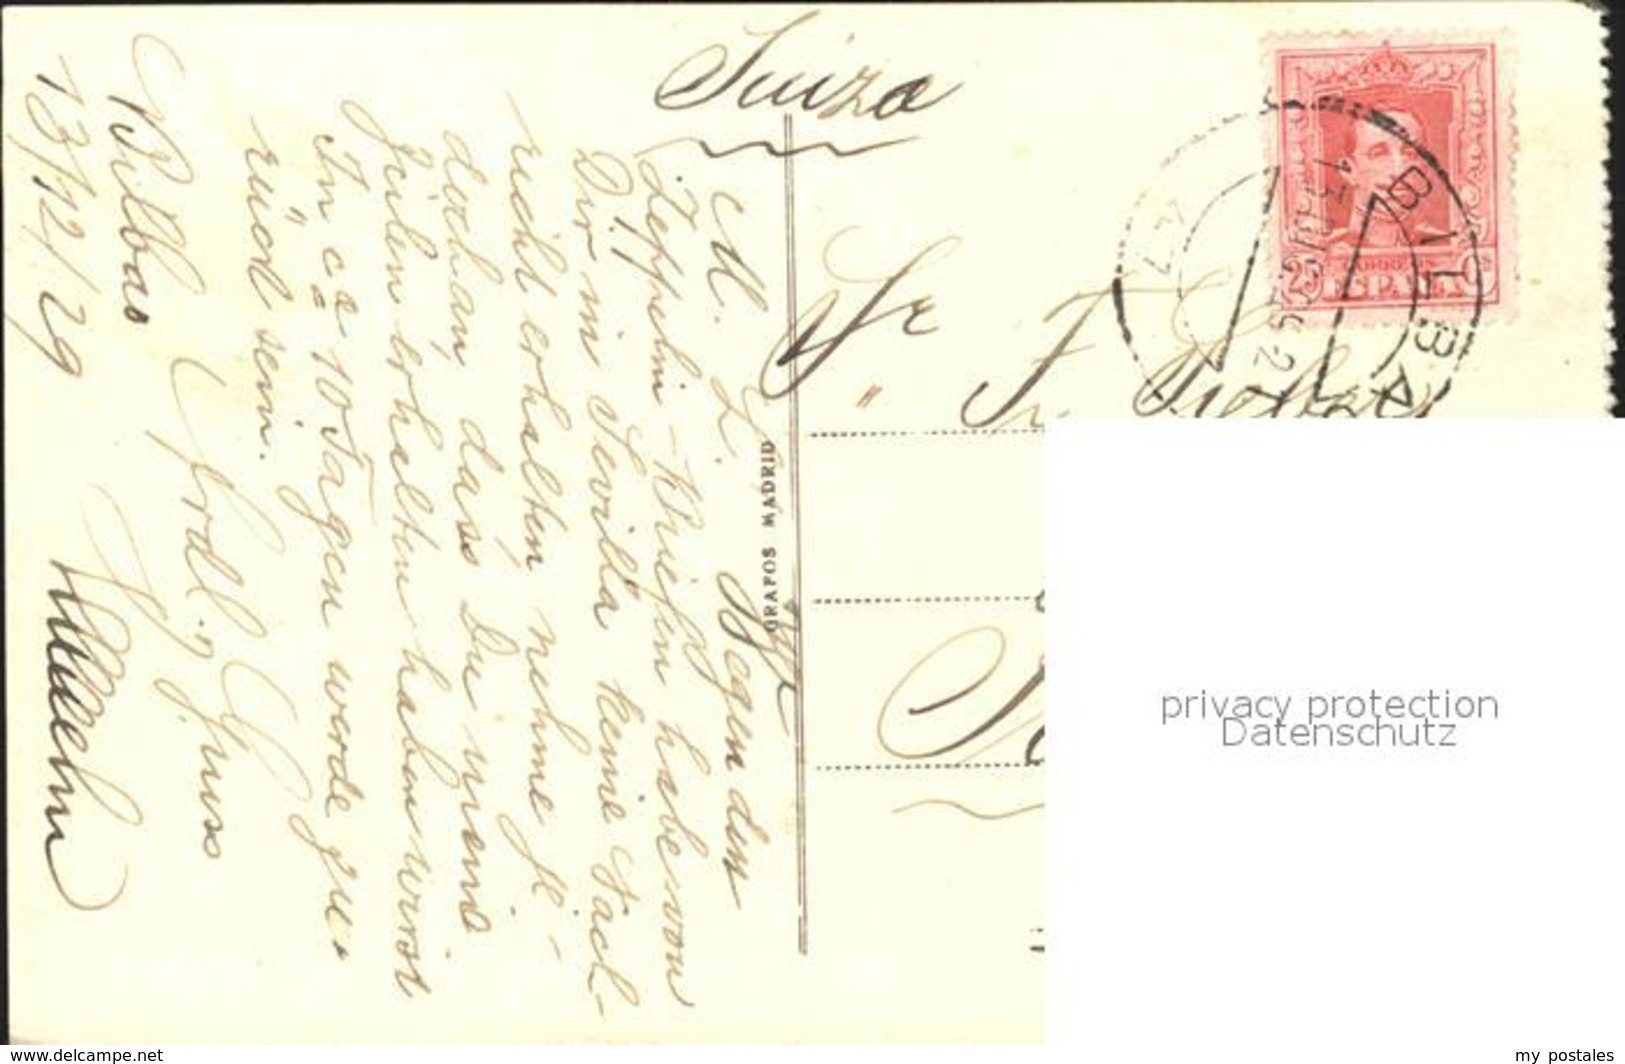 Suiza
M. L. Wegen den
Zeppelin-Briefen habe von
Dir in Sevilla keine Nach-
richt erhalten, nehme je-
doch an, dass Du meine
Zeilen erhalten haben wirst
In ca 10 Tagen werde zu-
rück sein.
Frdl. Gruss
Bilbao
13/12/29
Sr
" F.
GRAFOS MADRID
BILBAO
25
CORREOS
ESPAÑA
privacy protection
Datenschutz
www.delcampe.net
my postales